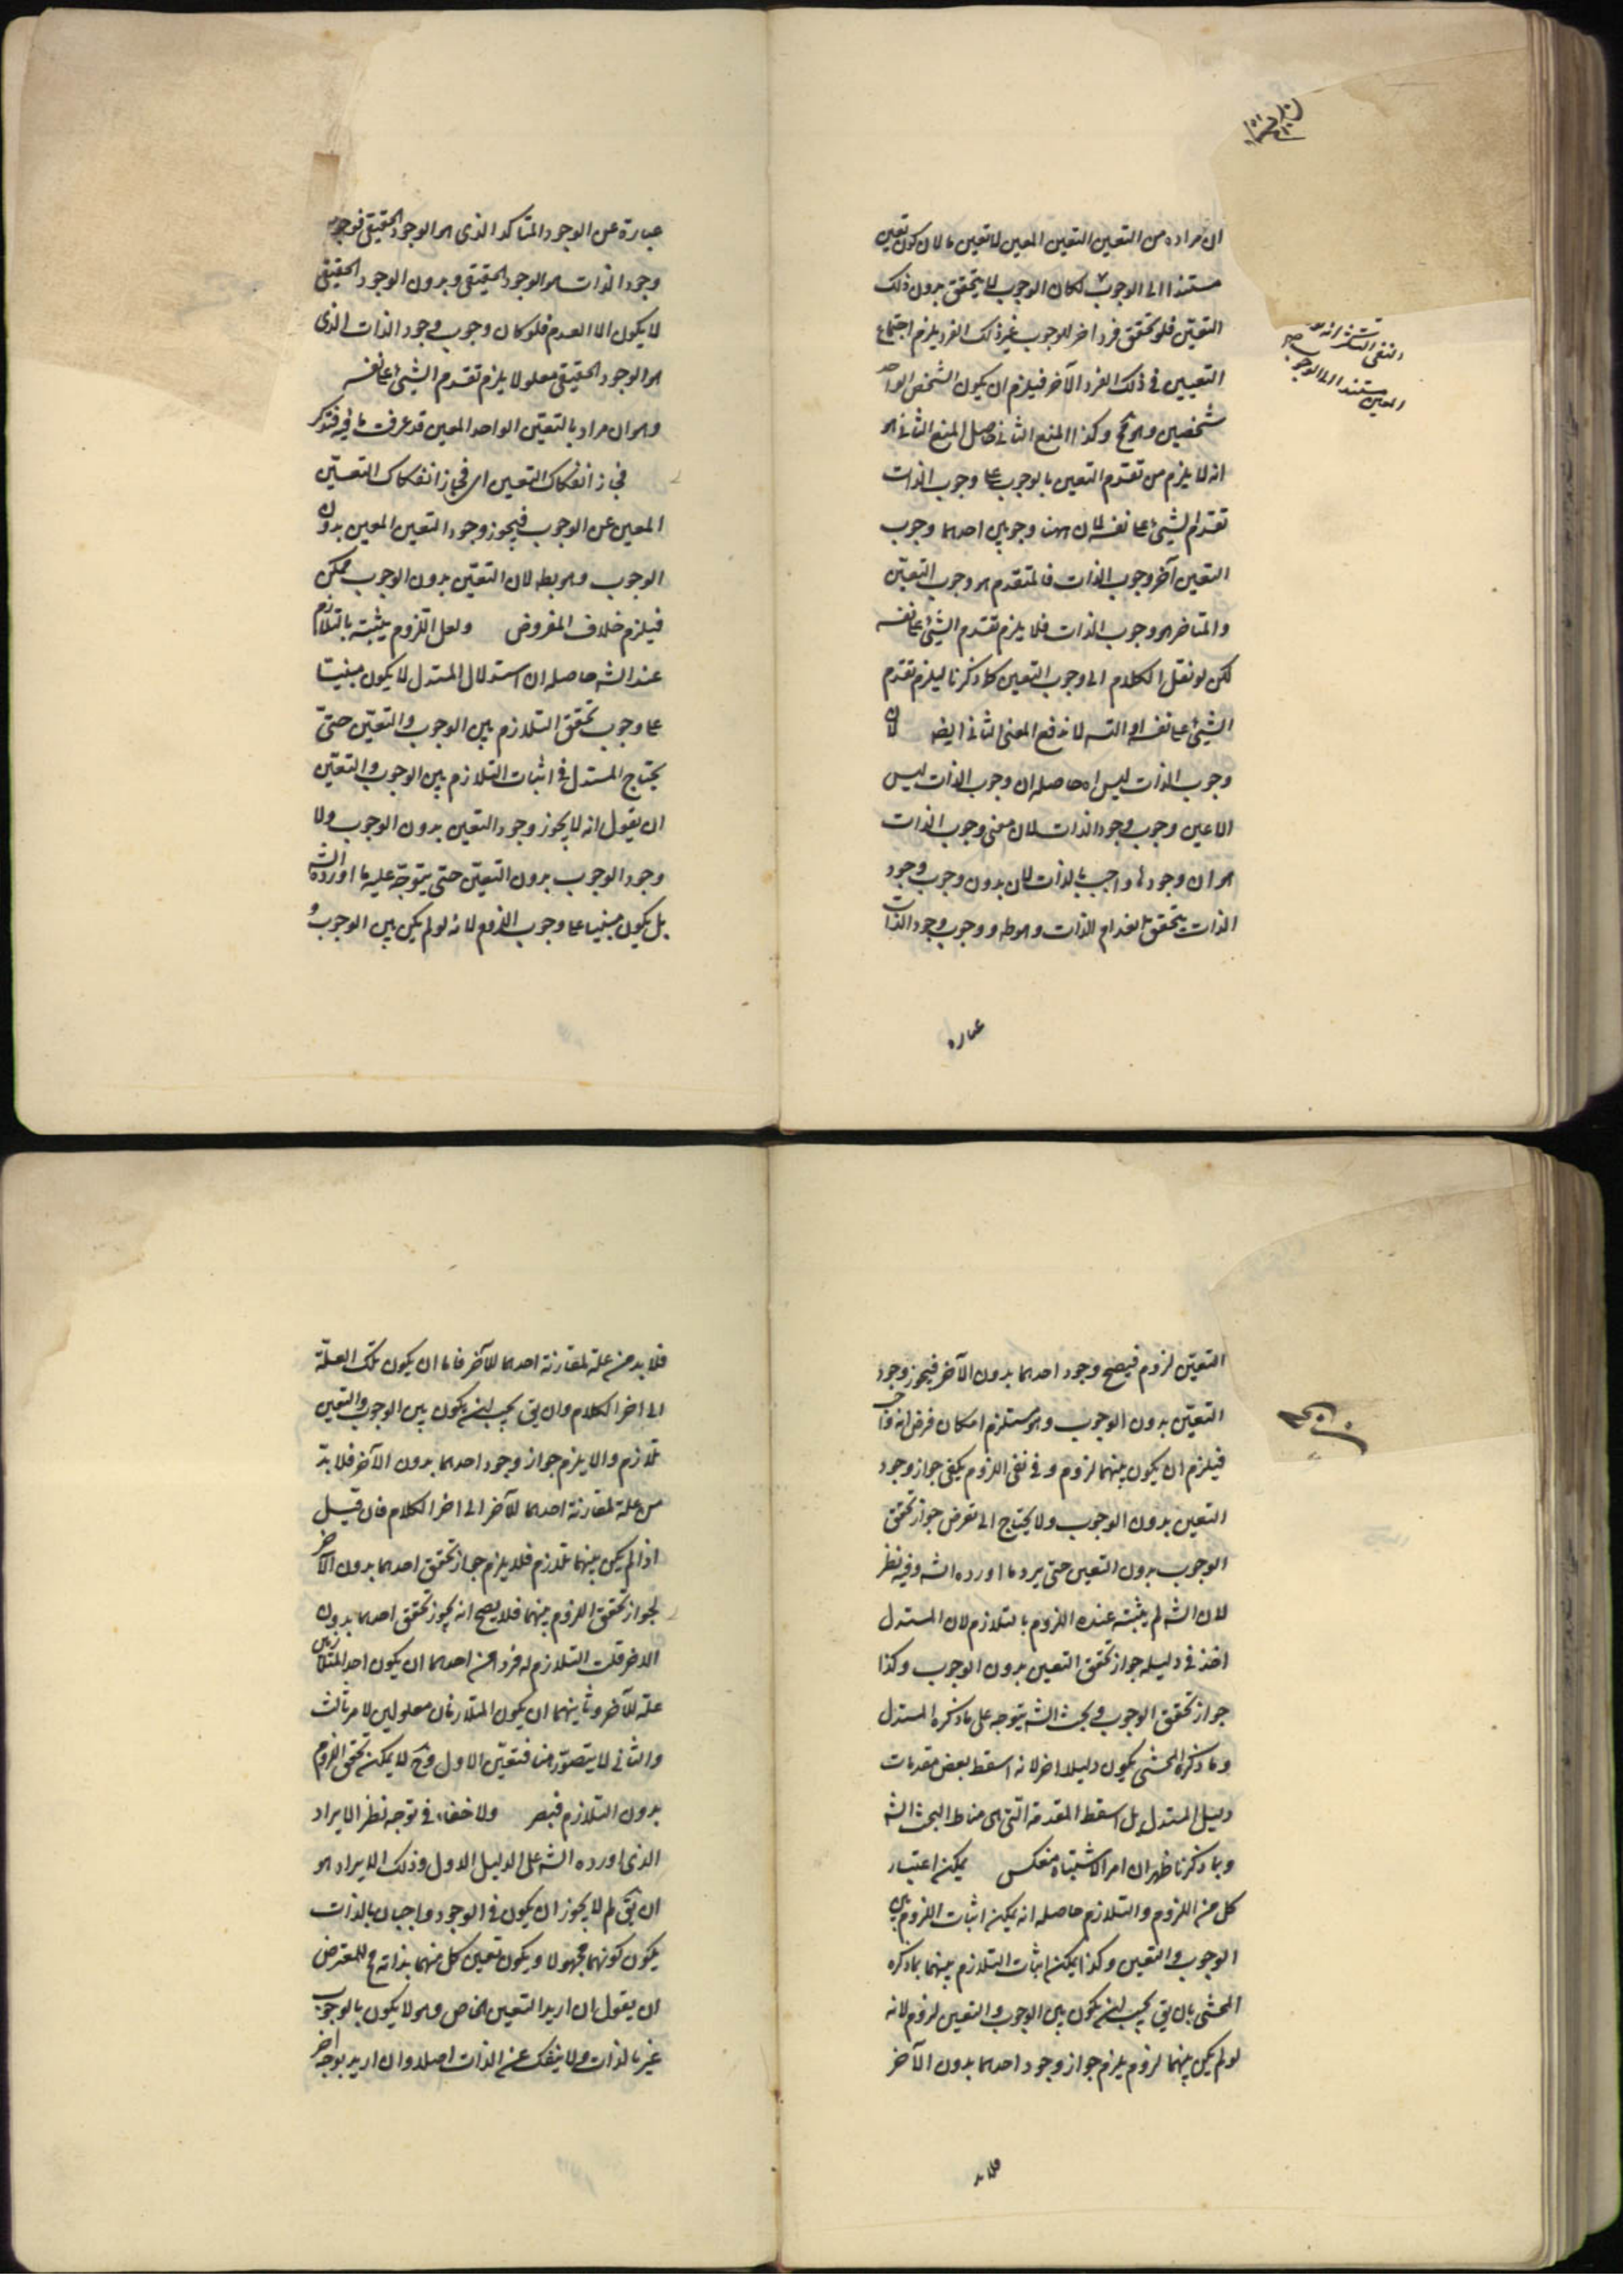 ان مراده من التعين التعين المعين لا تعين ما لان كون تعين
مستندا الى الوجوب لكان الوجوب لا يتحقق بدون ذلك
التعين فلو تحقق فرد اخر للوجوب غير ذلك الفرد يلزم اجتماع
التعيين فى ذلك الفرد الآخر فيلزم ان يكون الشخص الواحد
شخصين وهو مح وكذا المنع الثانى حاصل المنع الثانى هو
انه لا يلزم من تقدم التعين بالوجوب على وجوب الذات
تقدم الشيئ على نفسه لان ههنا وجوبين احدهما وجوب
التعين آخر وجوب الذات فالمتقدم هو وجوب التعين
والمتاخر هو وجوب الذات فلا يلزم تقدم الشيئ على نفسه
لكن لو نقل الكلام الى وجوب التعين كما ذكرنا ليلزم تقدم
الشيئ على نفسه او التسه لاندفع المعنى الثانى ايضه لان
وجوب الذات ليس اه حاصله ان وجوب الذات ليس
الا عين وجوب وجود الذات لان معنى وجوب الذات
هو ان وجودها واجب بالذات لان بدون وجوب وجود
الذات يتحقق انعدام الذات وهو طه ووجوب وجود الذات
عباره
النفى
المعين مستندا الى الوجوب
عبارة عن الوجود المتاكد الذى هو الوجود الحقيقى فوجوب
وجود الذات هو الوجود الحقيقى وبدون الوجود الحقيقى
لا يكون الا العدم فلو كان وجوب وجود الذات الذى
هو الوجود الحقيقى معلولا يلزم تقدم الشيئ على نفسه
وهو ان مراد بالتعين الواحد المعين قد عرفت ما فيه فتذكر
فجاز انفكاك التعين اى فجاز انفكاك التعين
المعين عن الوجوب فيجوز وجود التعين المعين بدون
الوجوب وهو بطه لان التعين بدون الوجوب ممكن
فيلزم خلاف المفروض ولعل اللزوم يثبته بالتلازم
عند الشه حاصله ان استدلال المستدل لا يكون مبنيا
على وجوب تحقق التلازم بين الوجوب والتعين حتى
يحتاج المستدل فى اثبات التلازم بين الوجوب والتعين
ان يقول انه لا يجوز وجود التعين بدون الوجوب ولا
وجود الوجوب بدون التعين حتى يتوجه عليه ما اورده الشه
بل يكون مبنيا على وجوب اللزوم لانه لو لم يكن بين الوجوب و
التعين لزوم فيصح وجود احدهما بدون الآخر فيجوز وجود
التعين بدون الوجوب وهو مستلزم امكان فرض انه واجب
فيلزم ان يكون بينهما لزوم وفى نفى اللزوم يكفى جواز وجود
التعين بدون الوجوب ولا يحتاج الى تعرض جواز تحقق
الوجوب بدون التعين حتى يرد ما اورده الشه وفيه نظر
لان الشه لم يثبته عنده اللزوم بالتلازم لان المستدل
اخذ فى دليله جواز تحقق التعين بدون الوجوب وكذا
جواز تحقق الوجوب وبحث الشه يتوجه على ما ذكره المستدل
وما ذكره المحشى يكون دليلا اخر لانه اسقط بعض مقدمات
دليل المستدل بل اسقط المقدمة التى هى مناط البحث الشه
وبما ذكرنا ظهر ان امر الاشتباه منعكس يمكن اعتبار
كل من اللزوم والتلازم حاصله انه يمكن اثبات اللزوم بين
الوجوب والتعين وكذا يمكن اثبات التلازم بينهما بما ذكره
المحشى بان يق يجب ان يكون بين الوجوب والتعين لزوم لانه
لو لم يكن بينهما لزوم يلزم جواز وجود احدهما بدون الآخر
فلا بد
فلا بد من علة لمقارنة احدهما للآخر فاما ان يكون تلك العلة
الى اخر الكلام وان يق يجب ان يكون بين الوجوب والتعين
تلازم والا يلزم جواز وجود احدهما بدون الآخر فلا بد
من علة لمقارنة احدهما للآخر الى اخر الكلام فان قيل
اذا لم يكن بينهما تلازم فلا يلزم جواز تحقق احدهما بدون الآخر
لجواز تحقق اللزوم بينهما فلا يصح انه يجوز تحقق احدهما بدون
الاخر قلت التلازم له فردا من احدهما ان يكون احد المتلازمين
علة للآخر وثانيهما ان يكون المتلازمان معلولين لامر ثالث
والثانى لا يتصور هنا فتعين الاول وح لا يمكن تحقق اللزوم
بدون التلازم فتبصر ولا خفاء فى توجه نظر الايراد
الذى اورده الشه على الدليل الاول وذلك الايراد هو
ان يق لم لا يجوز ان يكون فى الوجود واجبان بالذات
يكون كونهما مجهولا ويكون تعين كل منهما بذاته مح للمعترض
ان يقول ان اريد التعين الخاص وهو لا يكون بالوجوب
غير بالذات ولا ينفك عن الذات اصلا وان اريد بوجه اخر